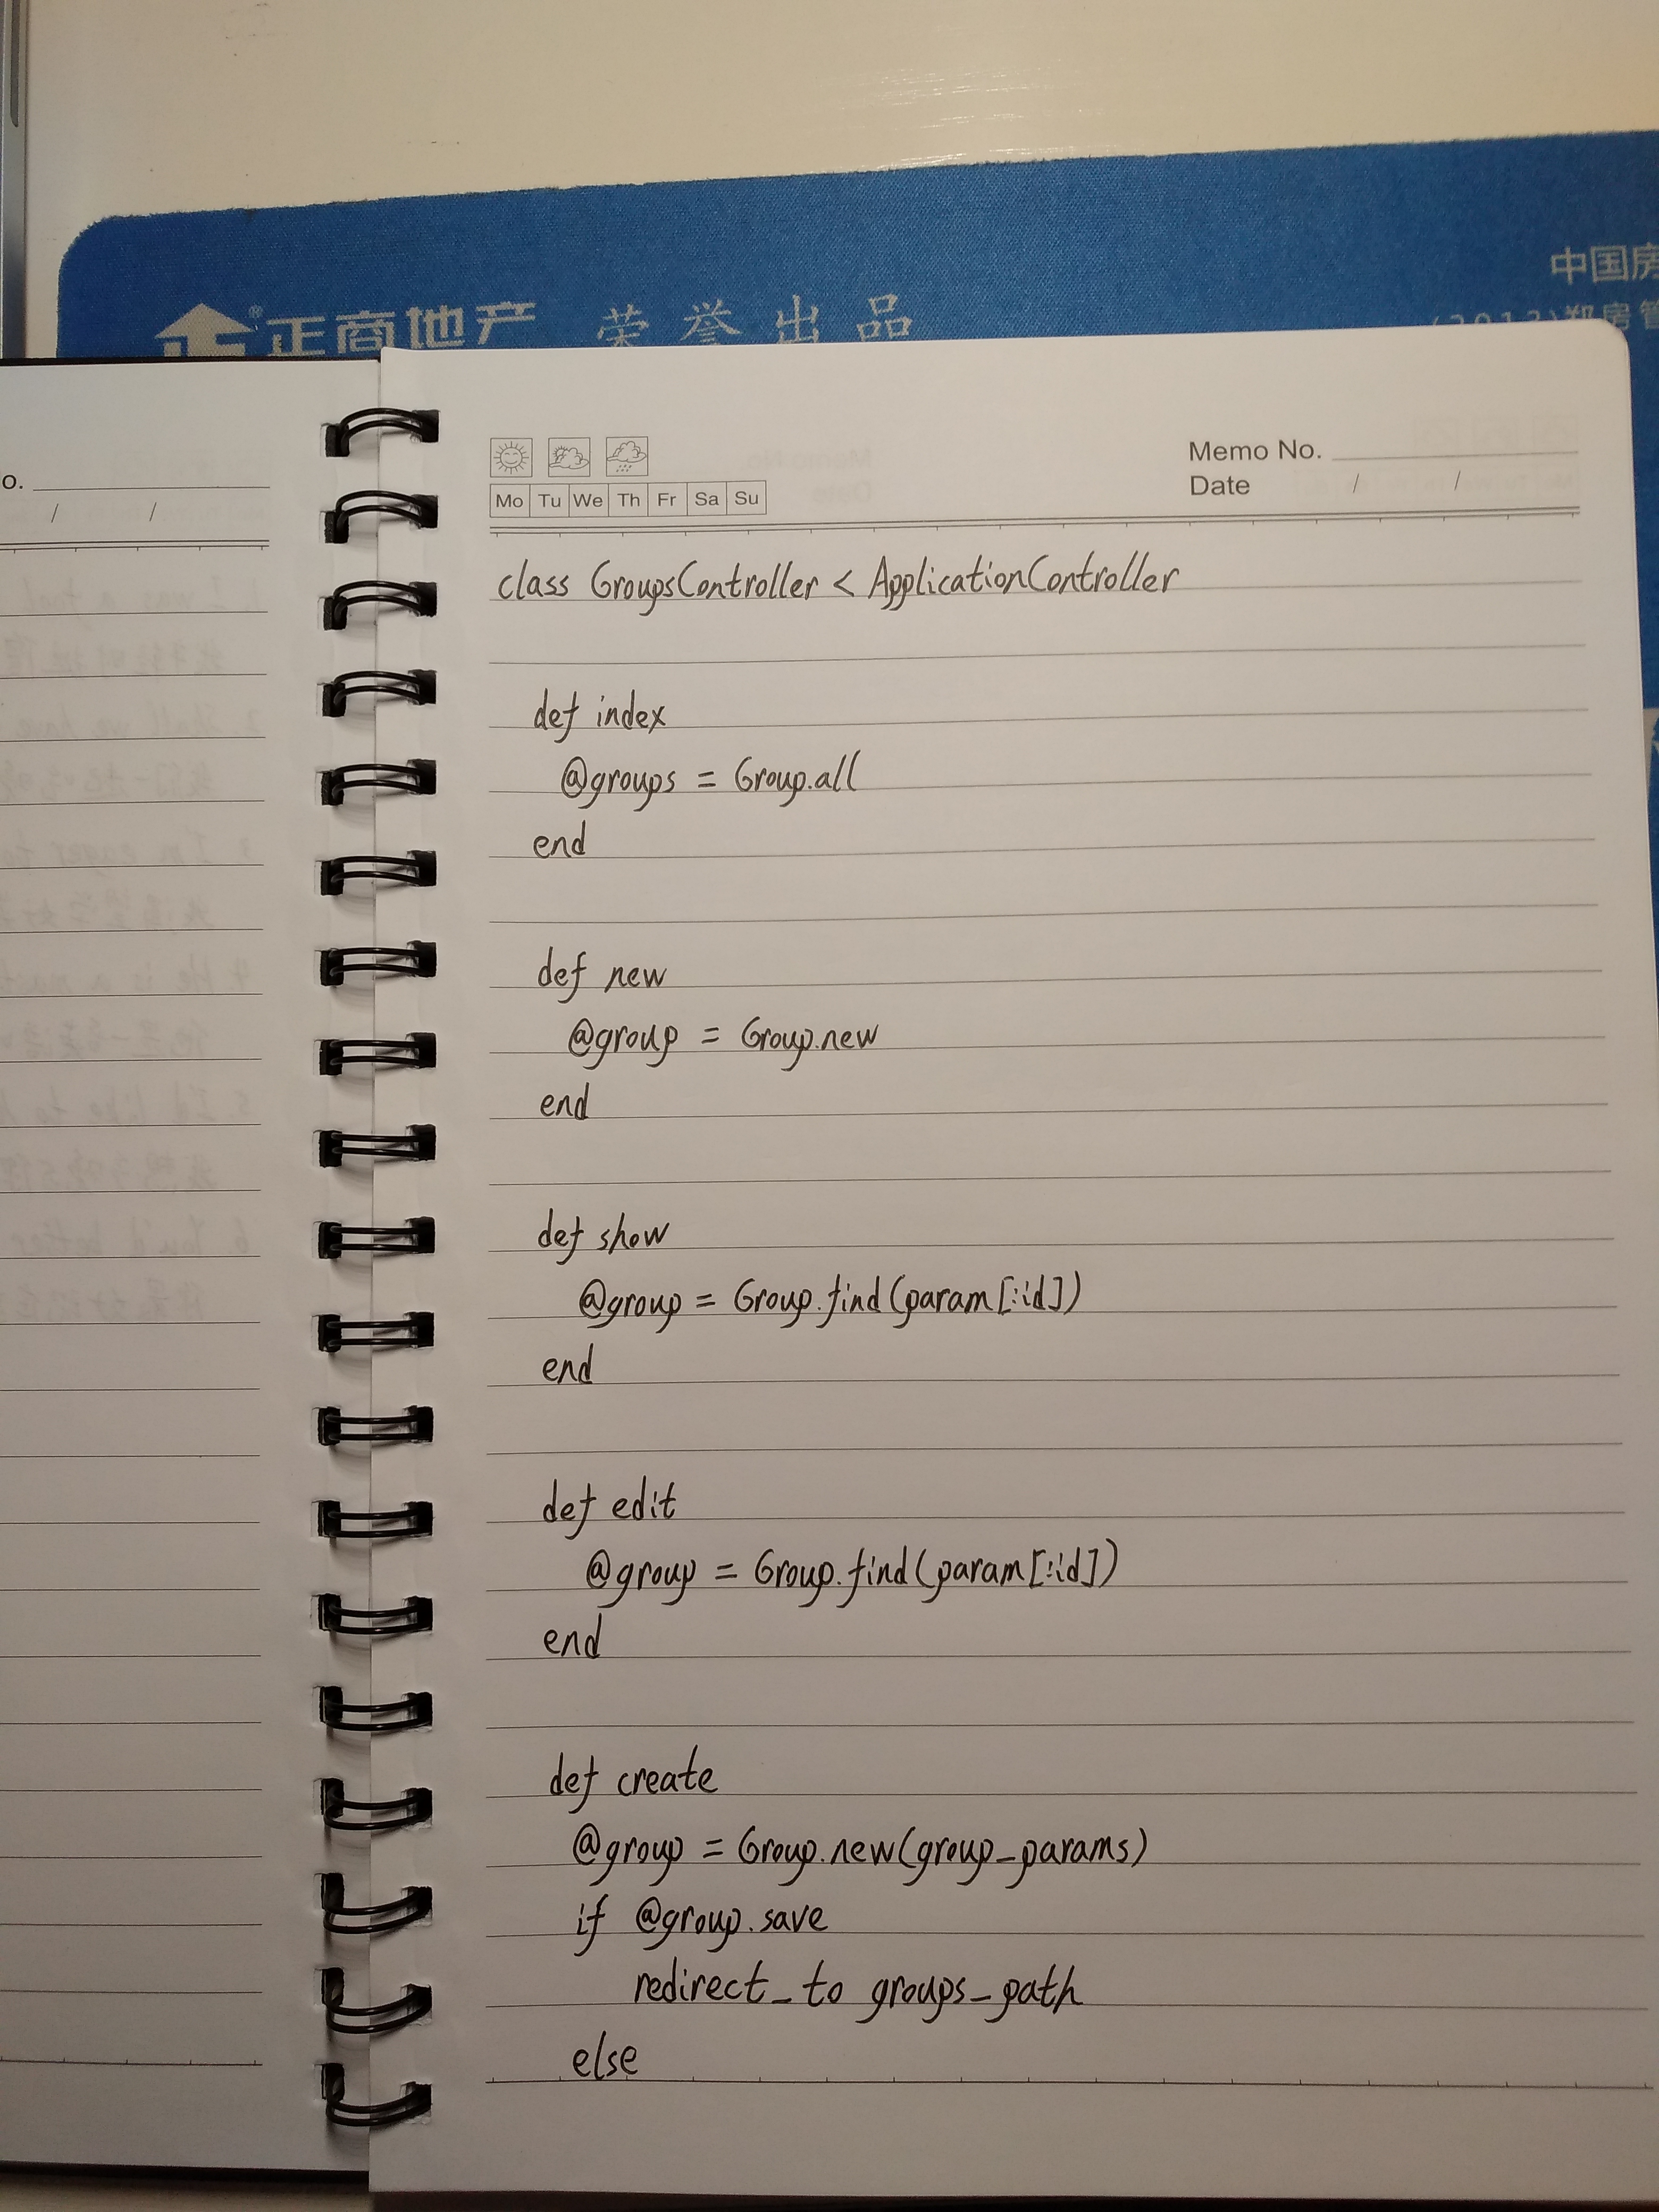 中国房
正商地产 荣誉出品
(2013)郑房管
o.
/ /
Memo No.
Mo Tu We Th Fr Sa Su
Date / /
class GroupsController < ApplicationController
def index
@groups = Group.all
end
def new
@group = Group.new
end
def show
@group = Group.find(param[:id])
end
def edit
@group = Group.find(param[:id])
end
def create
@group = Group.new(group_params)
if @group.save
redirect_to groups_path
else